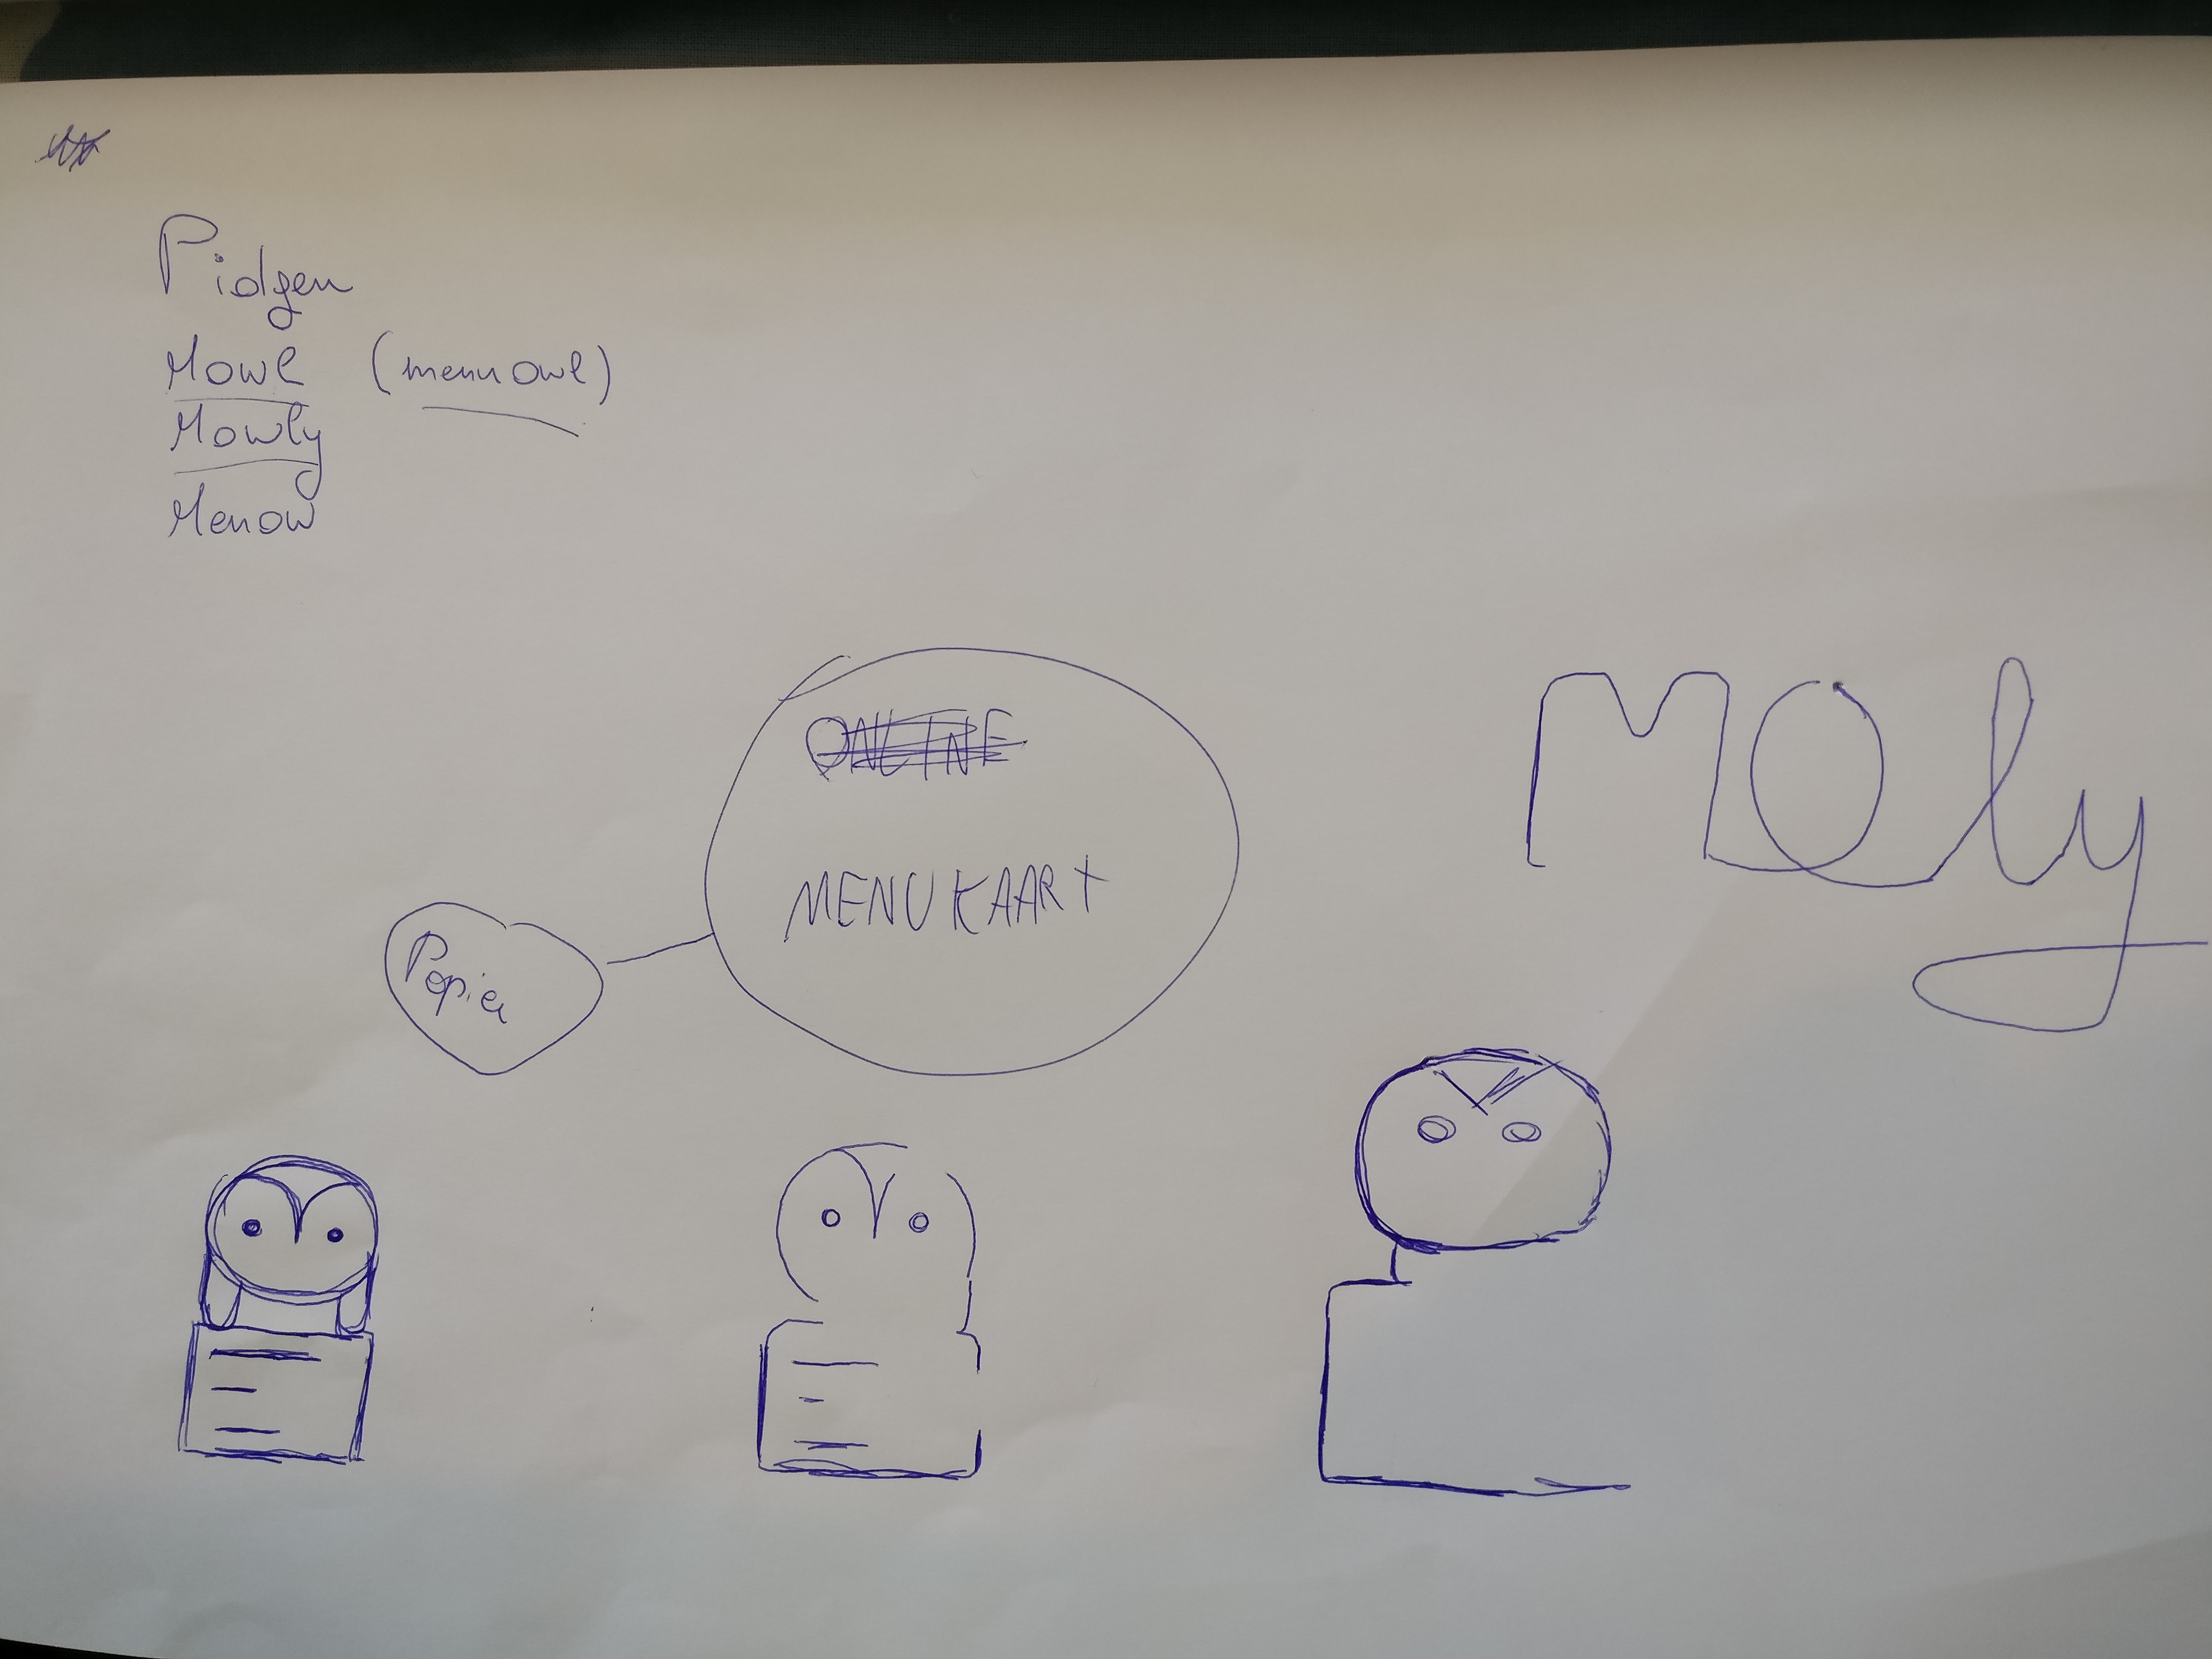 Pidgen
Mowl (menu owl)
Mowly
Menow
ONLINE
MENUKAART
Papier
MOly